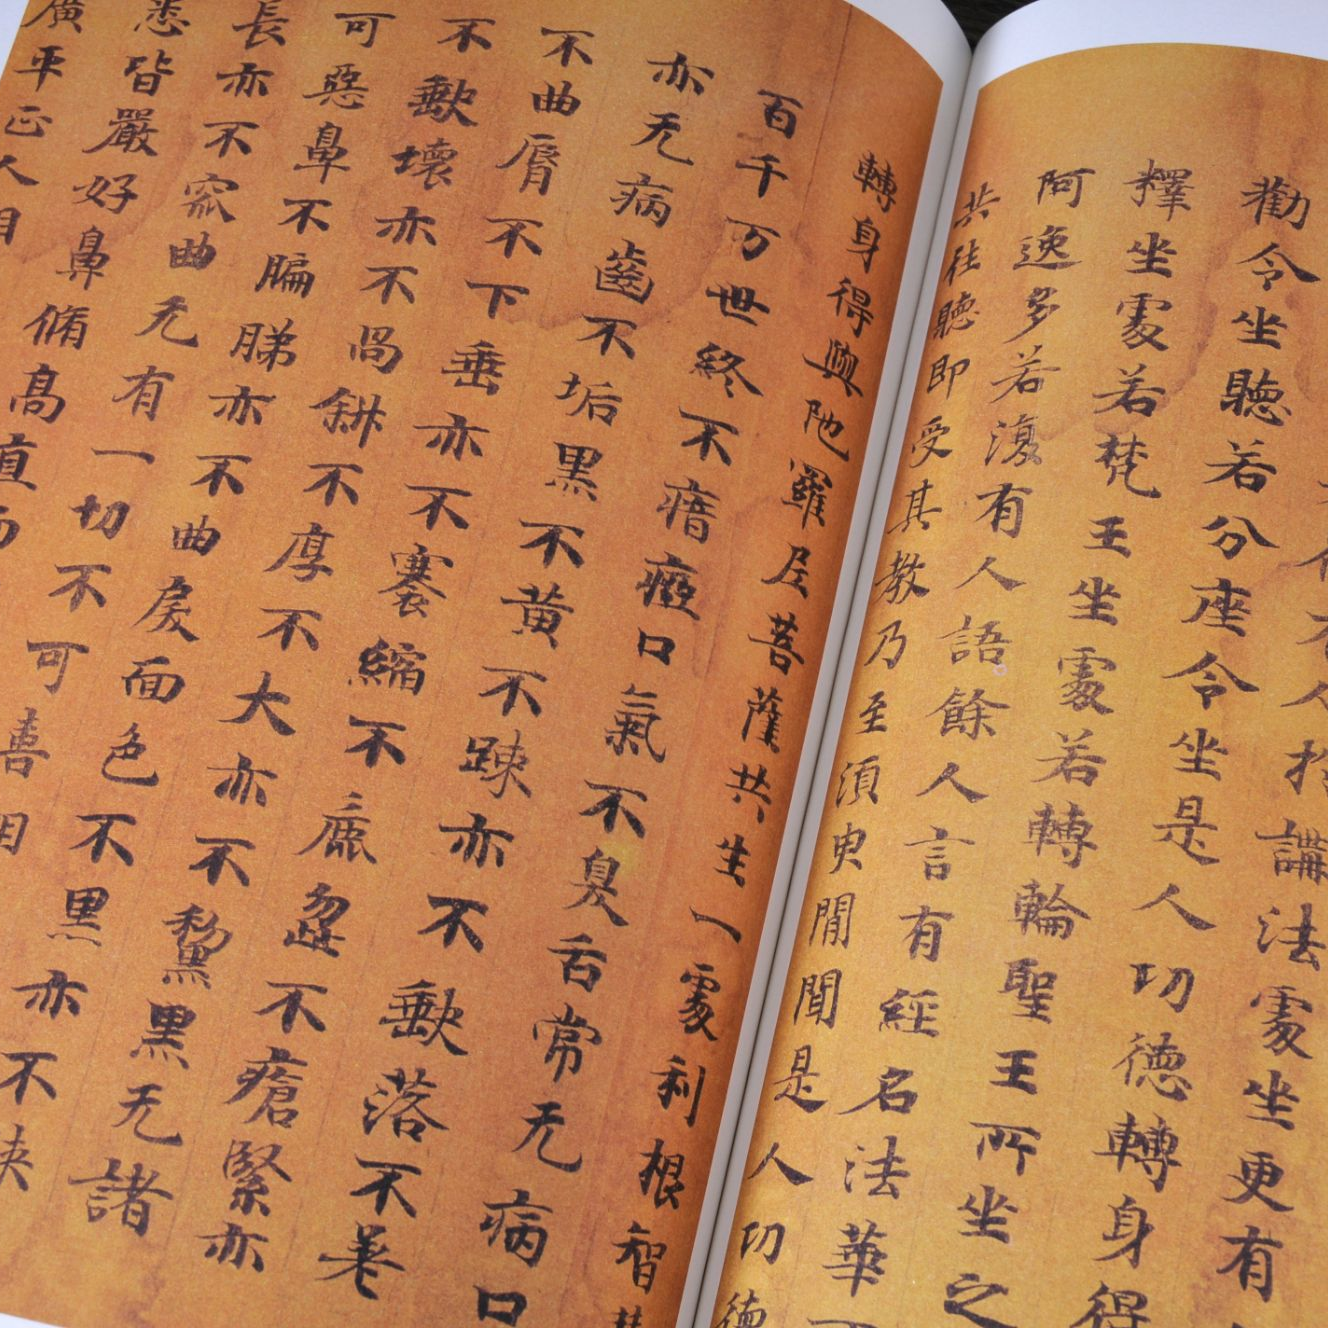 有人於講法處坐更有
勸令坐聽若分座令坐是人功德轉身得
釋坐處若梵王坐處若轉輪聖王所坐之
阿逸多若復有人語餘人言有經名法華
共往聽即受其教乃至須臾間聞是人功德
轉身得與陁羅尼菩薩共生一處利根智慧
百千万世終不瘖瘂口氣不臭舌常无病口
亦无病齒不垢黑不黄不踈亦不歠落不差
不曲脣不下垂亦不褰縮不麁澁不瘡緊亦
不歠壞亦不咼斜不厚不大亦不黧黑无諸
可惡鼻不匾㔸亦不曲戾面色不黑亦不
長亦不窊曲无有一切不可喜相
悉皆嚴好鼻脩高直面
廣平正人相